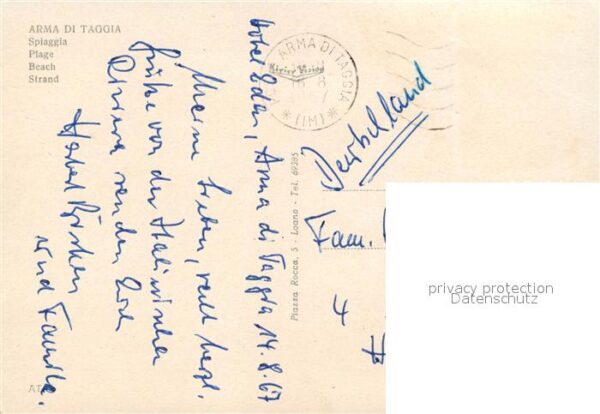 ARMA DI TAGGIA
Spiaggia
Plage
Beach
Strand
Hotel Eden, Arma di Taggia 14.8.67
Meine Lieben, recht herzl.
Grüße von der Italienischen
Riviera senden Euch
Herbert
und Familie.
ARMA DI TAGGIA
* (IM) *
Piazza Rocca, 5 - Loano - Tel. 69285
Deutschland
Fam.
4
privacy protection
Datenschutz